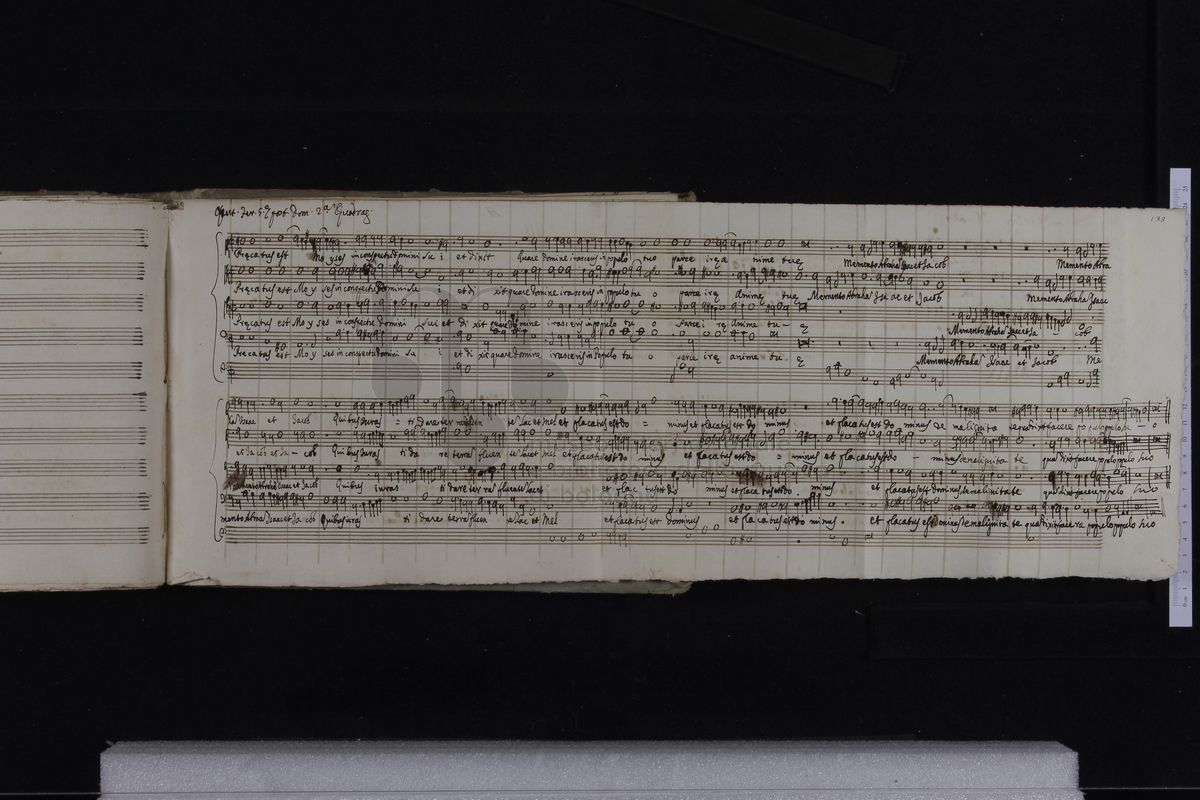 133
Offert. Fer. 5.ª post Dom. 2.ª Quadrag.
Precatus est Moyses in conspectu domini su i et dixit Quare domine irasceris in populo tuo parce ire anime tue Memento Abraha Isaac et Jacob Memento Abra
Precatus est Moy ses in conspectu domini su i et di xit quare domine irasceris in populo tu o parce ire Anime tue Memento Abraha Isa ac et Jacob Memento Abraha Isaac
Precatus est Mo y ses in conspectu domini su i et di xit quare domine irasceris in populo tu o Parce i re Anime tu - e Memento Abraha Isaac et Ja cob
Precatus est Mo y ses in conspectu domini su i et di xit quare domine irasceris in Populo tu o parce ire anime tu e Memento Abraha Isaac et Jacob Me
ha Isaac et Jacob Quibus iuras = ti Dare ter ram fluen te lac et mel et placatus est do = minus et placatus est do minus et placatus est do minus de malignita te quam dixit facere po pulo populo su - o
et Jacob et Ja - cob Quibus iuras ti da re terra fluen te lac et mel et placatus est do minus et placatus est do = minus et placatus est do - minus de malignita te quam dixit facere populo populo suo
Memento Abraha Isaac et Jacob Quibus iuras ti dare ter ram fluente lac et et plac tus est do minus et placa tus est do minus et placatus est dominus de malignitate quam dixit facere populo suo
mento Abraha Isaac et Ja cob Quibus iuras ti dare terra fluen te lac et Mel et placatus est dominus et pla catus est do minus. et placatus est Dominus de malignita te quam dixit facere populo populo suo